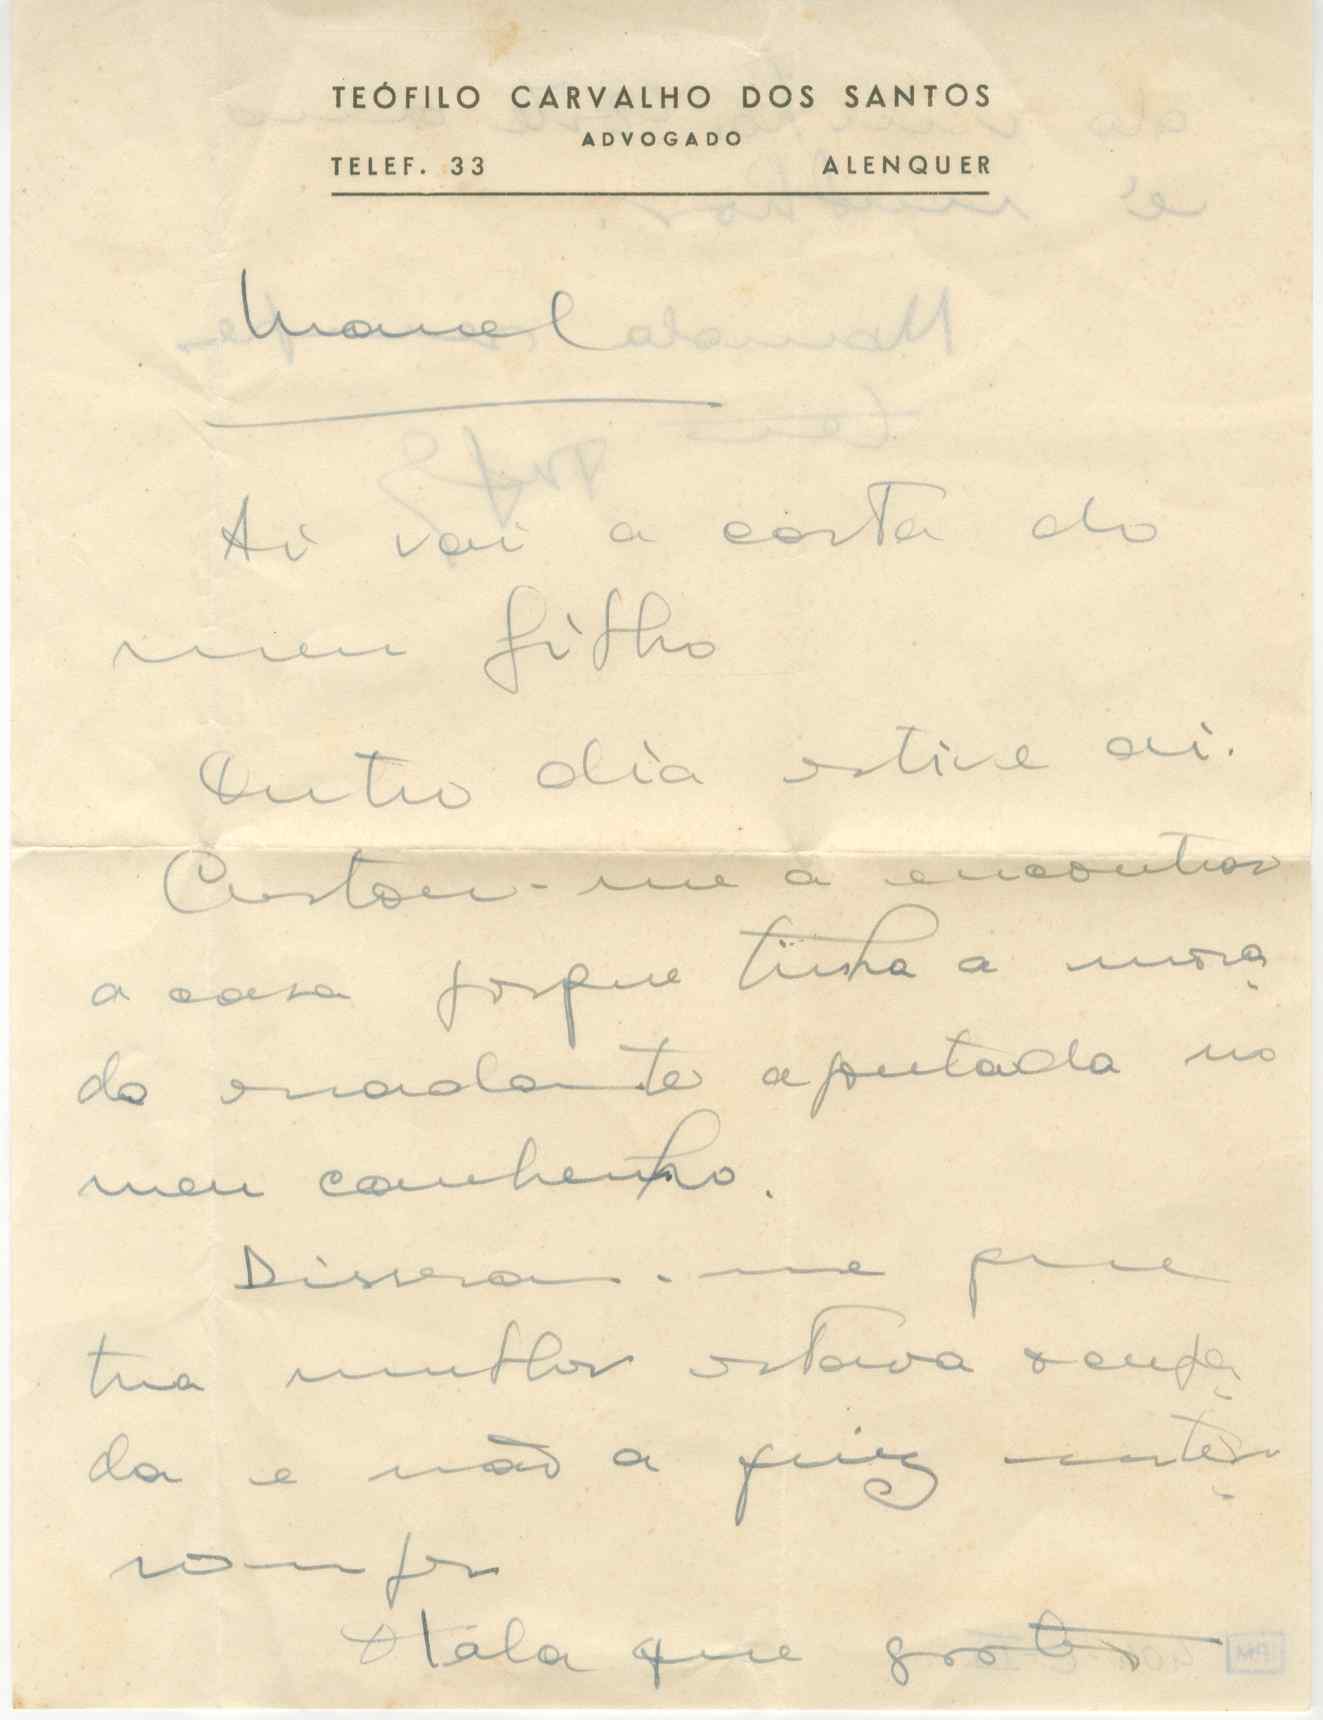 TEÓFILO CARVALHO DOS SANTOS
ADVOGADO
TELEF. 33 ALENQUER
Manuel
Aí vai a carta do
meu filho
Outro dia estive aí.
Custou-me a encontrar
a casa porque tinha a mora-
da errada apontada no
meu canhenho.
Disseram-me que
tua mulher estava ocupa-
da e não a quiz inter-
romper
Oxalá que gostes